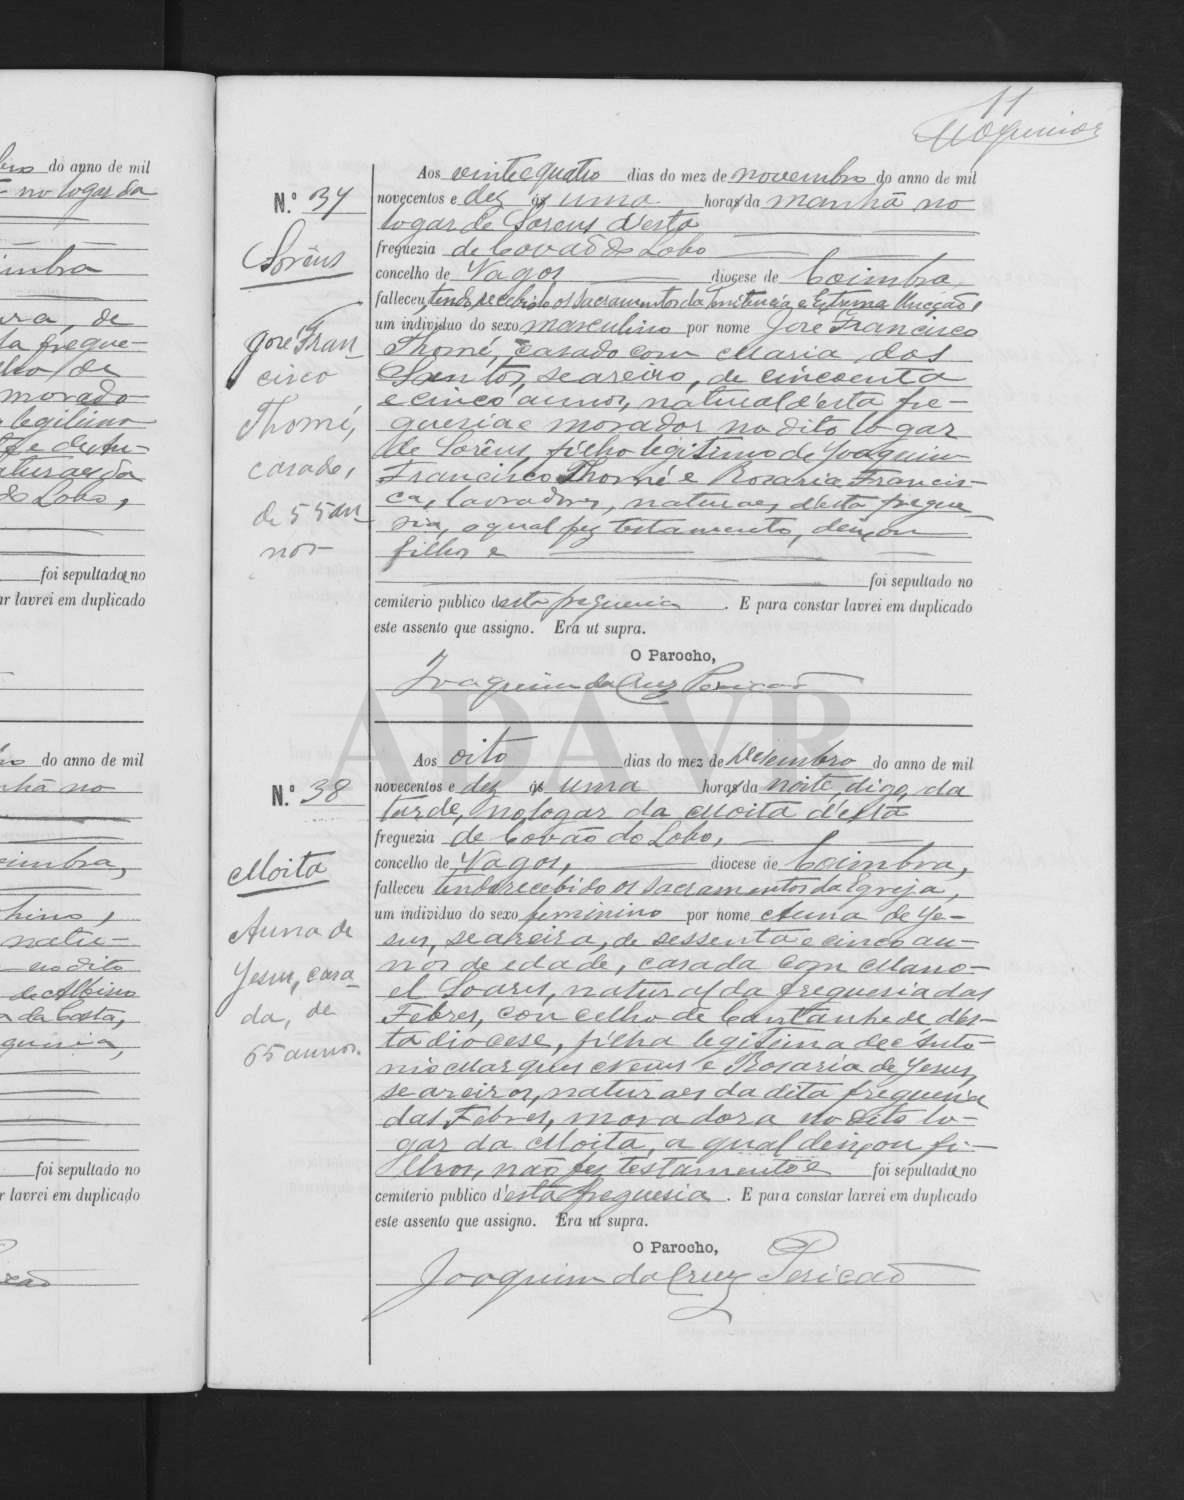 11
do anno de mil
no logar da
de
morado
legitimo
do Lobo,
foi sepultada no
lavrei em duplicado
do anno de mil
nhã no
Coimbra,
natu-
no dito
de Albino
da Costa,
foi sepultado no
lavrei em duplicado
N.º 37
Lorêus
José Fran
cisco
Thomé,
casado,
de 55 an
nos
Aos vinte e quatro dias do mez de novembro do anno de mil
novecentos e dez ás uma horas da manhã no
logar de Loreus d'esta
freguezia de Covão do Lobo
concelho de Vagos diocese de Coimbra
falleceu, tendo recebido os sacramentos da Penitencia e Extrema Uncção,
um individuo do sexo masculino por nome José Francisco
Thomé, casado com Maria dos
Santos, seareiro, de cincoenta
e cinco annos, natural d'esta fre-
guesia e morador no dito logar
de Lorêus, filho legitimo de Joaquim
Francisco Thomé e Rosaria Francis-
ca, lavradores, naturaes d'esta fregue
sia, o qual fez testamento, deixou
filhos e
foi sepultado no
cemiterio publico d'esta freguesia. E para constar lavrei em duplicado
este assento que assigno. Era ut supra.
O Parocho,
Joaquim da Cruz Pericão
ADAVR
N.º 38
Moita
Anna de
Jesus, casa-
da, de
65 annos.
Aos oito dias do mez de Desembro do anno de mil
novecentos e dez ás uma horas da noite, digo, da
tarde, no logar da Moita d'esta
freguezia de Covão do Lobo,
concelho de Vagos, diocese de Coimbra,
falleceu tendo recebido os sacramentos da Egreja,
um individuo do sexo feminino por nome Anna de Je-
sus, seareira, de sessenta e cinco an-
nos de edade, casada com Mano-
el Soares, natural da freguesia das
Febres, concelho de Cantanhede, d'es-
ta diocese, filha legitima de Anto-
nio Marques Neves e Rosaria de Jesus,
seareiros, naturaes da dita freguesia
das Febres, moradora no dito lo-
gar da Moita, a qual deixou fi-
lhos, não fez testamento e foi sepultada no
cemiterio publico d'esta freguesia. E para constar lavrei em duplicado
este assento que assigno. Era ut supra.
O Parocho,
Joaquim da Cruz Pericão